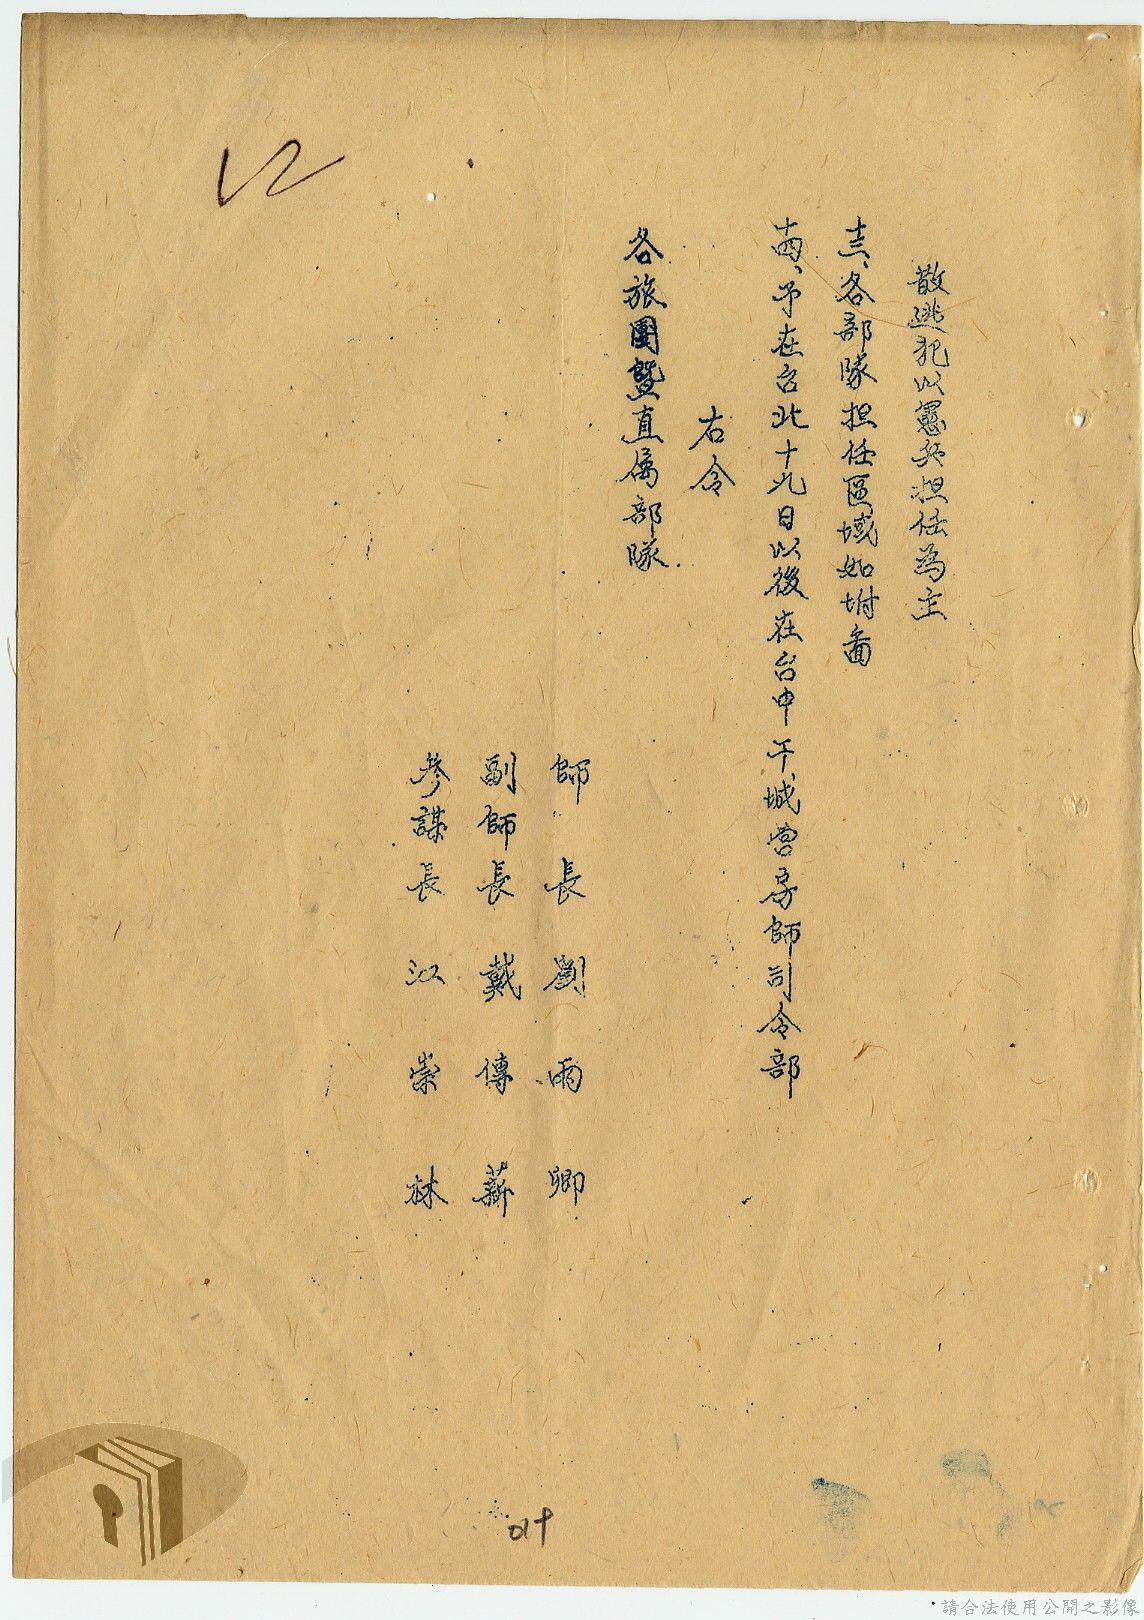 散逃犯以憲兵担任為主
十三、各部隊担任區域如坿圖
十四、予在台北十九日以後在台中干城营房師司令部
右令
各旅團暨直属部隊
師長劉雨卿
副師長戴傳薪
参謀長江崇林
12
019
請合法使用公開之影像